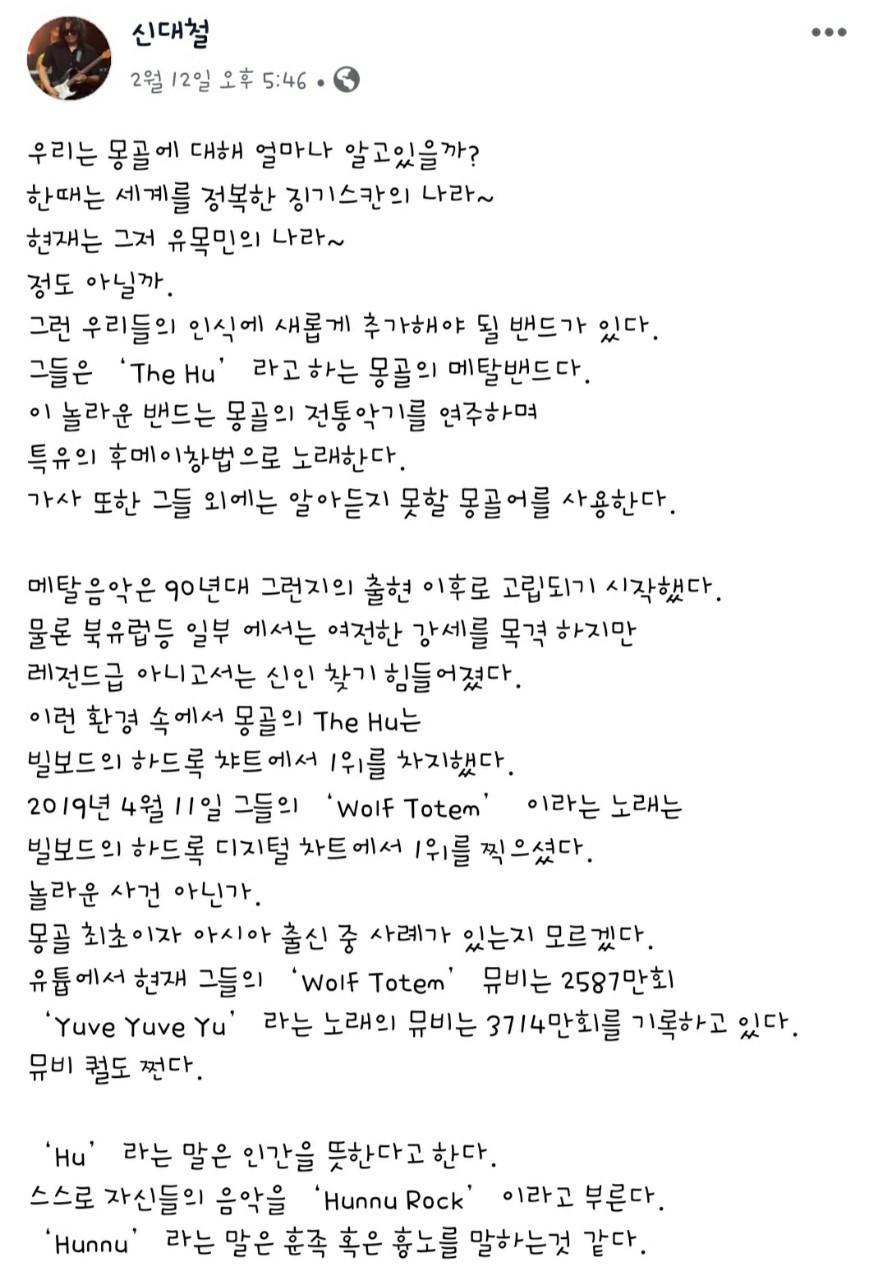 신대철
2월 12일 오후 5:46 •
우리는 몽골에 대해 얼마나 알고있을까?
한때는 세계를 정복한 징기스칸의 나라~
현재는 그저 유목민의 나라~
정도 아닐까.
그런 우리들의 인식에 새롭게 추가해야 될 밴드가 있다.
그들은 ‘The Hu’ 라고 하는 몽골의 메탈밴드다.
이 놀라운 밴드는 몽골의 전통악기를 연주하며
특유의 후메이창법으로 노래한다.
가사 또한 그들 외에는 알아듣지 못할 몽골어를 사용한다.
메탈음악은 90년대 그런지의 출현 이후로 고립되기 시작했다.
물론 북유럽등 일부 에서는 여전한 강세를 목격 하지만
레전드급 아니고서는 신인 찾기 힘들어졌다.
이런 환경 속에서 몽골의 The Hu는
빌보드의 하드록 챠트에서 1위를 차지했다.
2019년 4월 11일 그들의 ‘Wolf Totem’ 이라는 노래는
빌보드의 하드록 디지털 차트에서 1위를 찍으셨다.
놀라운 사건 아닌가.
몽골 최초이자 아시아 출신 중 사례가 있는지 모르겠다.
유튭에서 현재 그들의 ‘Wolf Totem’ 뮤비는 2587만회
‘Yuve Yuve Yu’ 라는 노래의 뮤비는 3714만회를 기록하고 있다.
뮤비 퀄도 쩐다.
‘Hu’ 라는 말은 인간을 뜻한다고 한다.
스스로 자신들의 음악을 ‘Hunnu Rock’ 이라고 부른다.
‘Hunnu’ 라는 말은 훈족 혹은 흉노를 말하는것 같다.